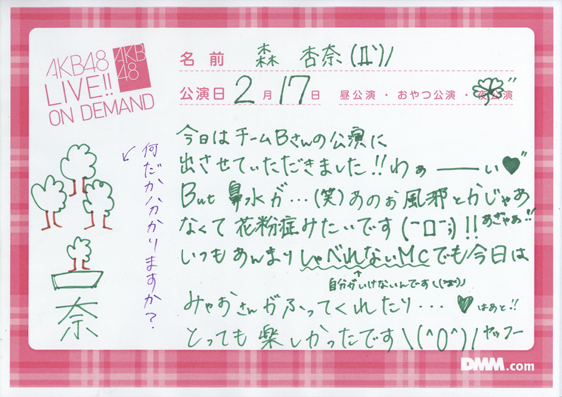 AKB48
LIVE!!
ON DEMAND
AKB
48
名前 森 杏奈(Д`)ノ
公演日 2月17日 昼公演・おやつ公演・夜公演
今日はチームBさんの公演に
出させていただきました!!わぁーーい♥
But 鼻水が…(笑)あのぉ風邪とかじゃぁ
なくて花粉症みたいです(￣ロ￣;)!!あぎゃぁ!!
いつもあんまりしゃべれないMCでも今日は
自分がいけないんです
みゃおさんがふってくれたり…♥はぁと!!
とっても楽しかったです\(^O^)/ヤッフー
何だか分かりますか?
奈
DMM.com